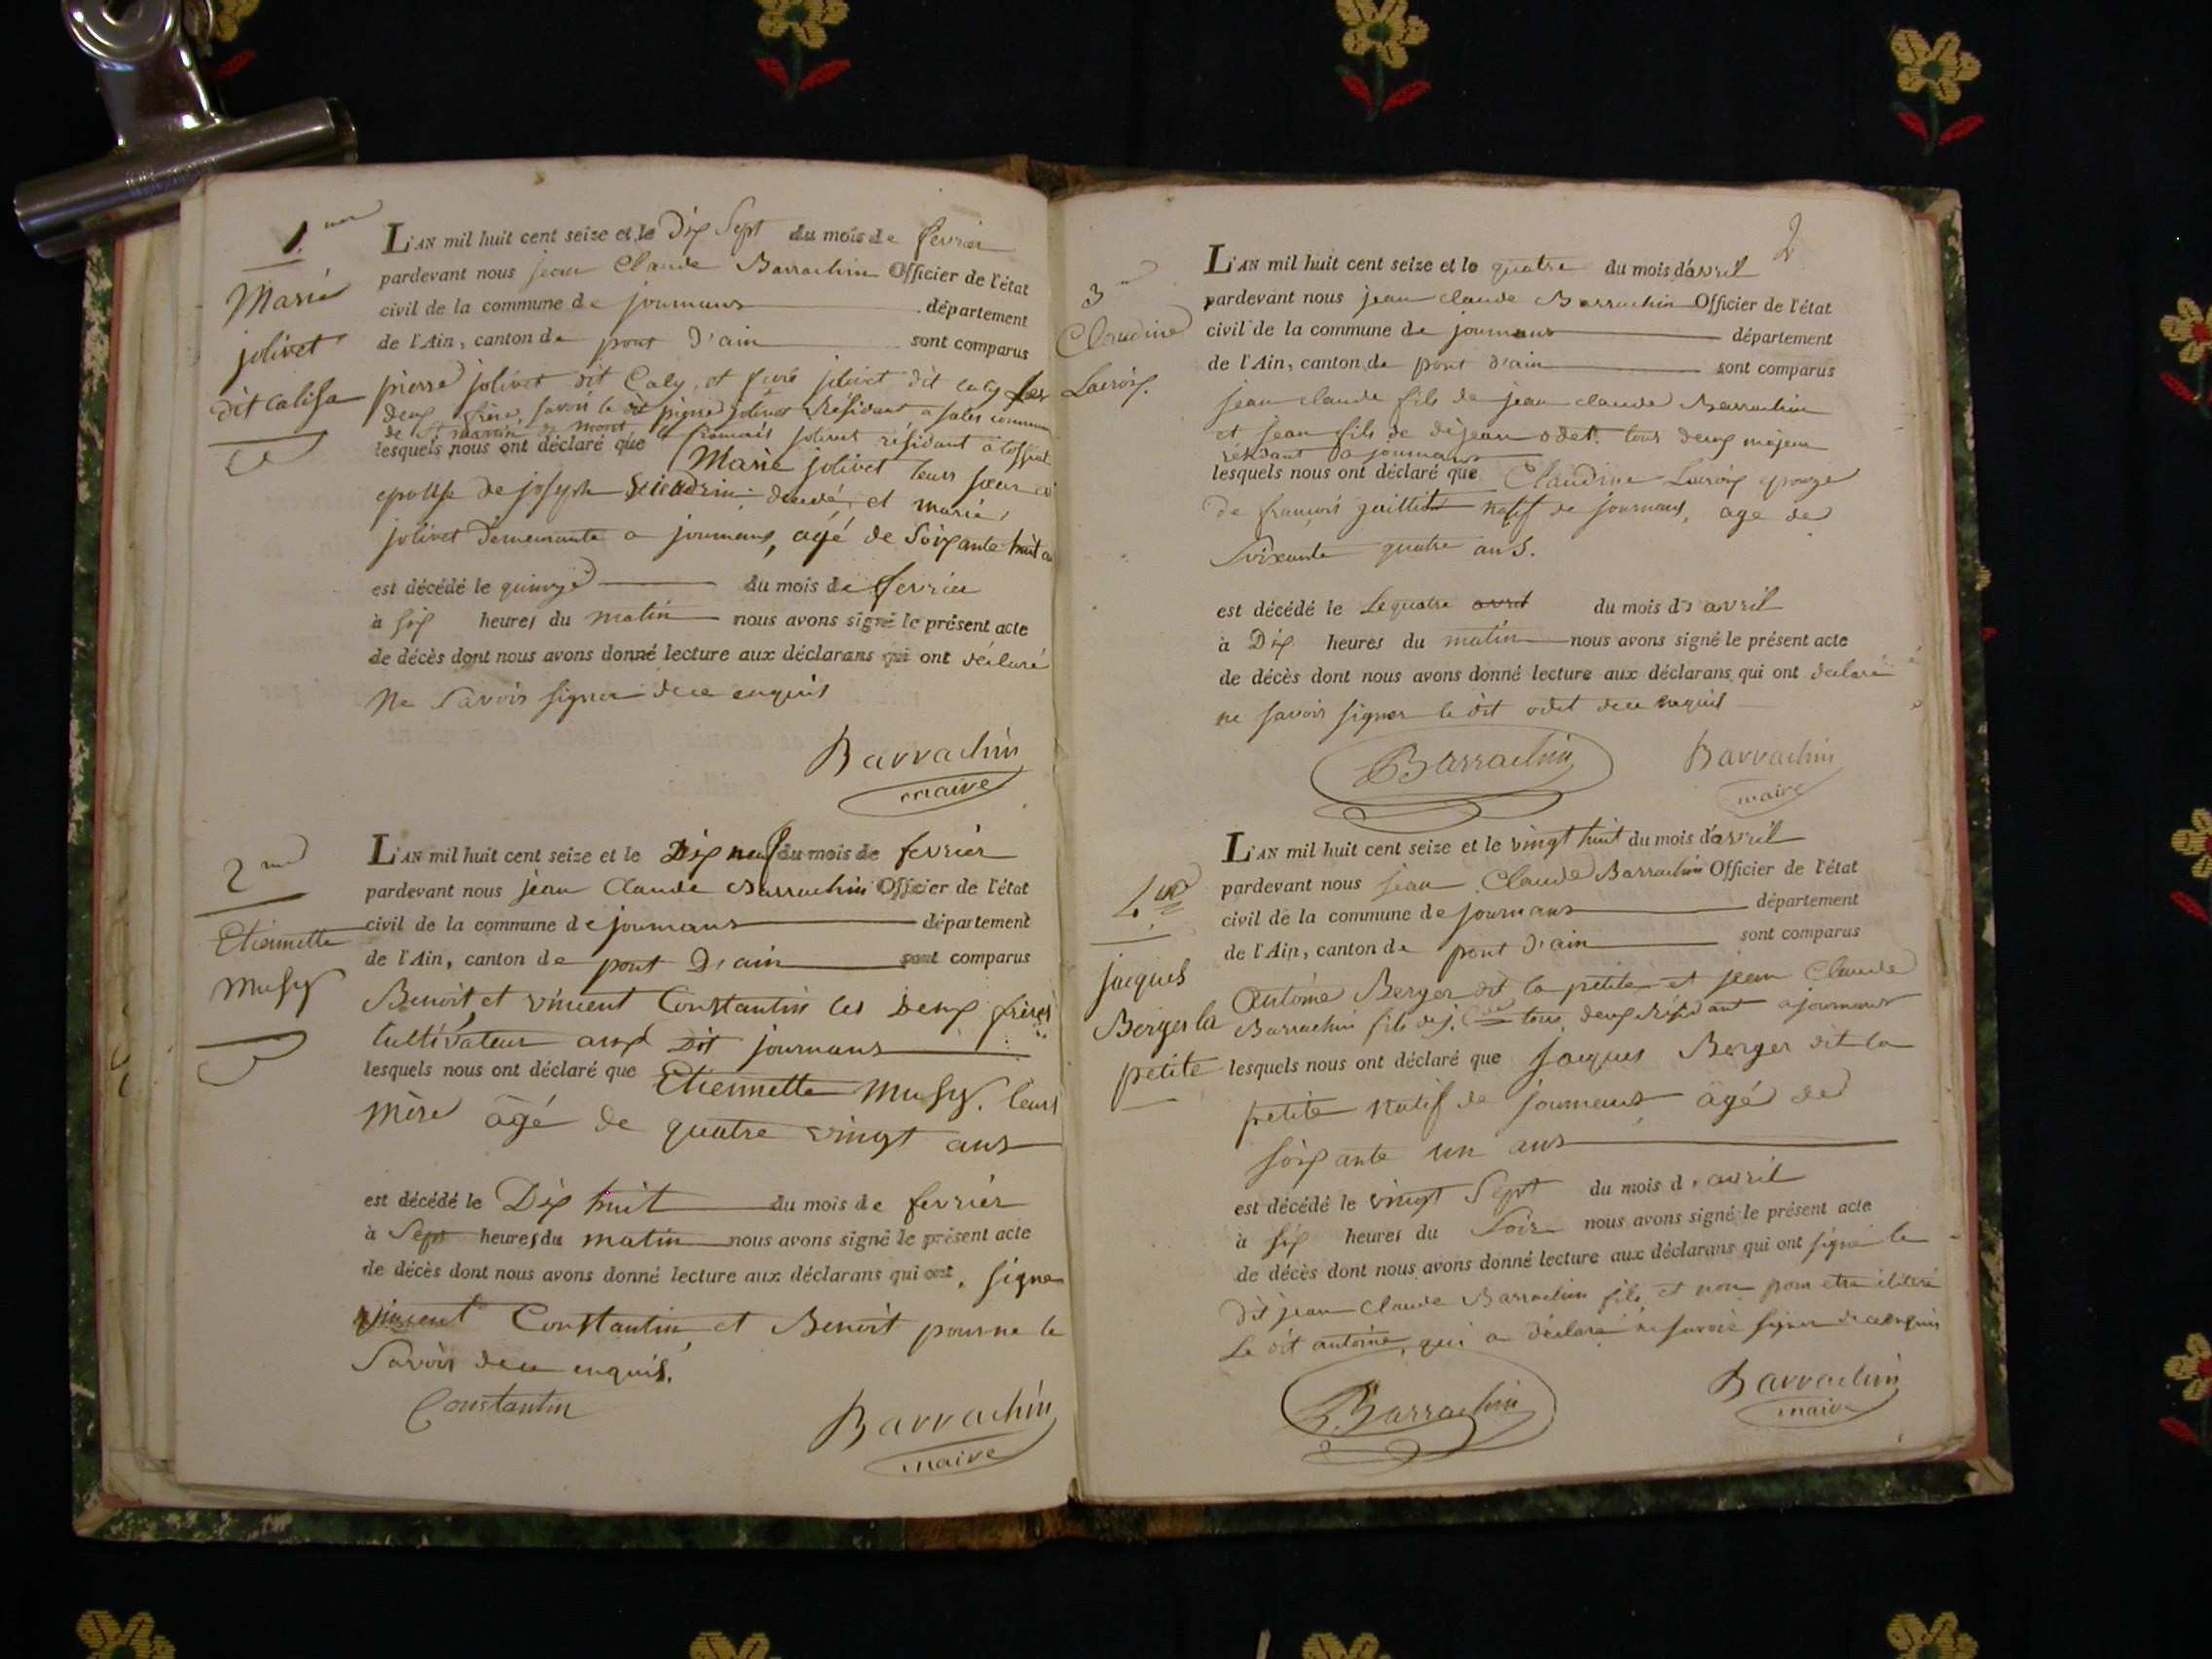 1.
Marie
jolivet
dit calisa
L'AN mil huit cent seize et le Dix Sept du mois de fevrier
pardevant nous jean Claude Barrachin Officier de l'état
civil de la commune de journans département
de l'Ain, canton de pont d'ain sont comparus
pierre jolivet dit Caly, et jolivet dit caly les
deux frère savoir le dit pierre jolivet résidant a commune
de St martin du mont francois jolivet résidant à
lesquels nous ont déclaré que Marie jolivet leur sœur
epouse de joseph et marie
jolivet demeurante a journans, agé de Soixante huit
est décédé le quinze du mois de fevrier
à six heures du matin nous avons signé le présent acte
de décès dont nous avons donné lecture aux déclarans qui ont déclaré
Ne Savoir signer de ce enquis
Barrachin
maire
2
Etiennette
Musy
L'AN mil huit cent seize et le Dix neuf du mois de fevrier
pardevant nous jean Claude Barrachin Officier de l'état
civil de la commune de journans département
de l'Ain, canton de pont D'ain sont comparus
Benoit et vincent Constantin les Deux frères
Cultivateur aux dit journans
lesquels nous ont déclaré que Etiennette Musy. leurs
Mère âgé de quatre vingt ans
est décédé le Dix huit du mois de fevrier
à Sept heures du matin nous avons signé le présent acte
de décès dont nous avons donné lecture aux déclarans qui ont signer
vincent Constantin et Benoit pour ne le
Savoir de ce enquis.
Constantin
Barrachin
maire
2
3
Claudine
Lacroix.
L'AN mil huit cent seize et le quatre du mois d'avril
pardevant nous jean claude Barrachin Officier de l'état
civil de la commune de journans département
de l'Ain, canton de pont d'ain sont comparus
jean claude fils de jean claude Barrachin
et jean fils de jean odet tous deux majeur
résidant a journans
lesquels nous ont déclaré que Claudine Lacroix epouze
de françois guillit natif de journans, age de
Soixante quatre ans.
est décédé le Le quatre avril du mois d'avril
à Dix heures du matin nous avons signé le présent acte
de décès dont nous avons donné lecture aux déclarans qui ont declaré
ne savoir signer le dit odet de ce requis
Barrachin
Barrachin
maire
4
jacques
Berger la
petite
L'AN mil huit cent seize et le vingt huit du mois d'avril
pardevant nous jean Claude Barrachin Officier de l'état
civil de la commune de journans département
de l'Ain, canton de pont d'ain sont comparus
Antoine Berger dit la petite et jean Claude
Barrachin fils de j. Cde tous deux résidant a journans
lesquels nous ont déclaré que jacques Berger dit la
petite natif de journans agé de
soixante un ans
est décédé le vingt Sept du mois d'avril
à six heures du Soir nous avons signé le présent acte
de décès dont nous avons donné lecture aux déclarans qui ont signé le
dit jean Claude Barrachin fils et non pour etre
Le dit antoine, qui a déclaré ne savoir signer de ce enquis
Barrachin
Barrachin
maire